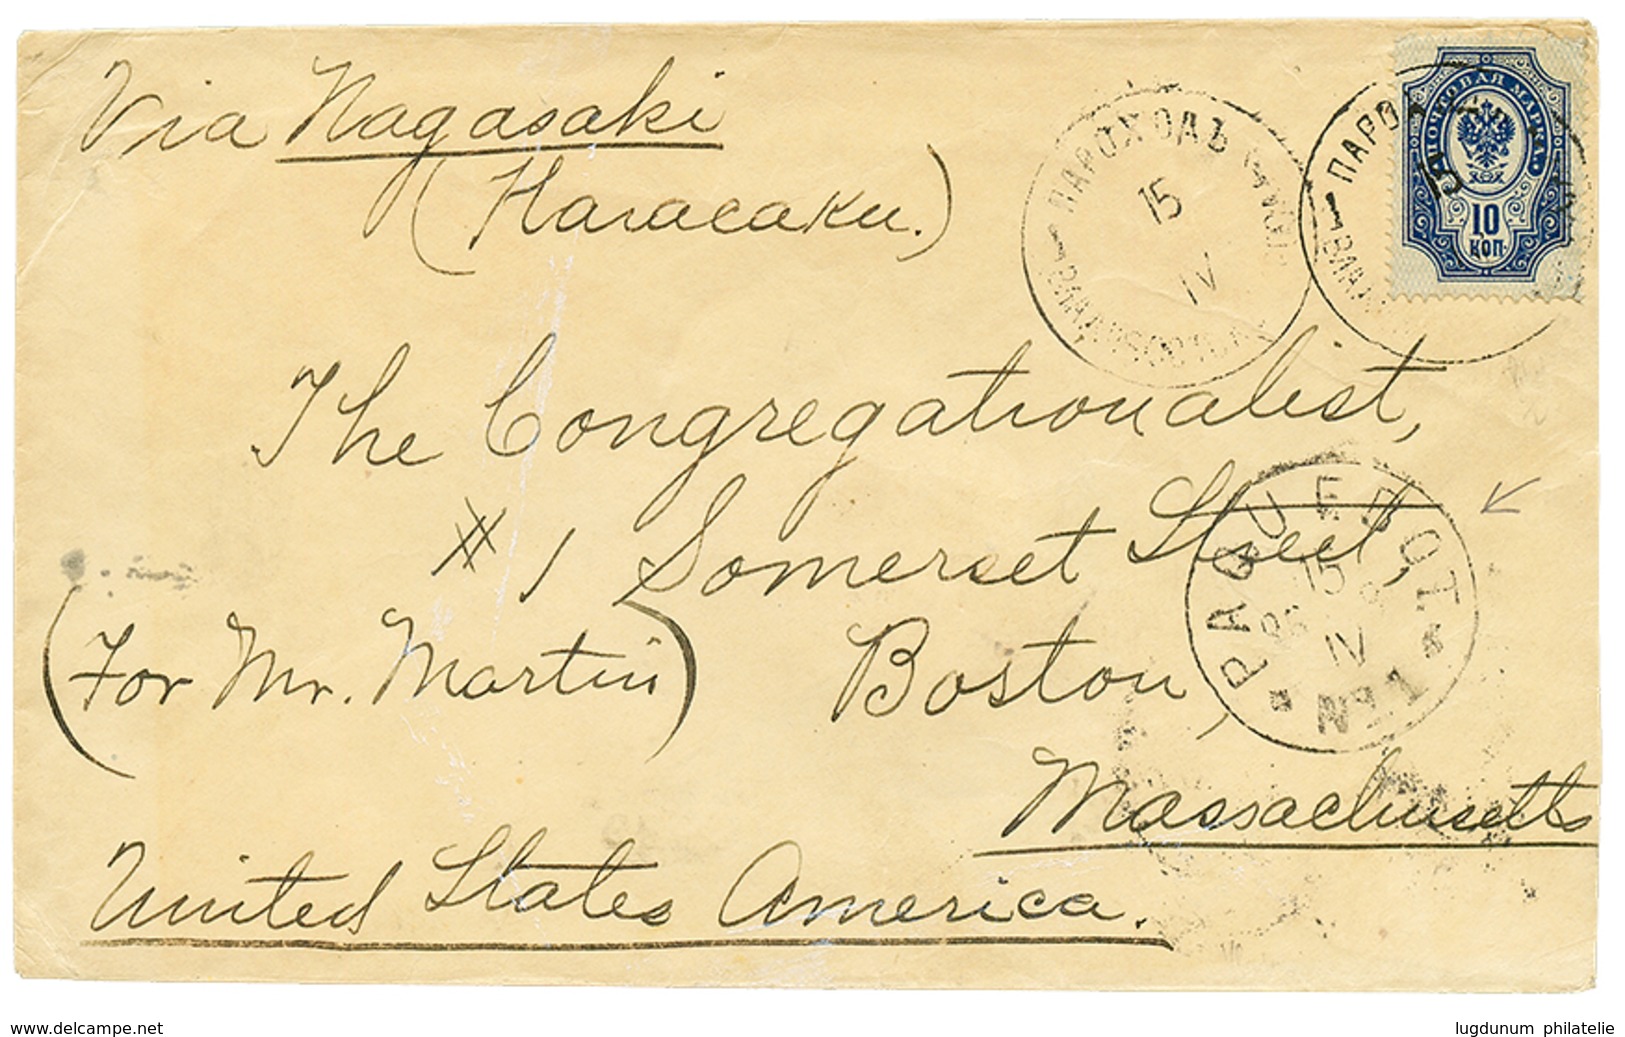 Via Nagasaki
(Нагасаки.)
ПАРОХОДЪ
15
IV
ПОЧТОВАЯ МАРКА.
10
КОП.
ПАРОХ
The Congregationalist,
# 1 Somerset Street,
PAQUEBOT
15
IV
No 1
(For Mr. Martin)
Boston,
Massachusetts
United States America.
www.delcampe.net
lugdunum philatelie